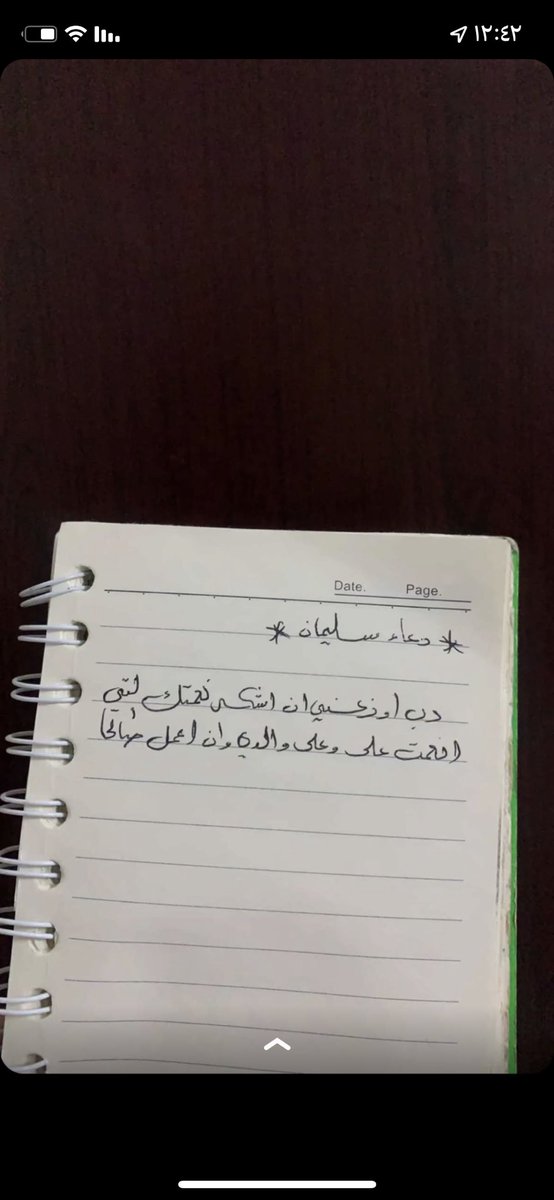 ١٢:٤٢
Date. Page.
* دعاء سليمان *
رب اوزعني ان اشكر نعمتك لتي
انعمت علي وعلى والدي وان اعمل صالحا